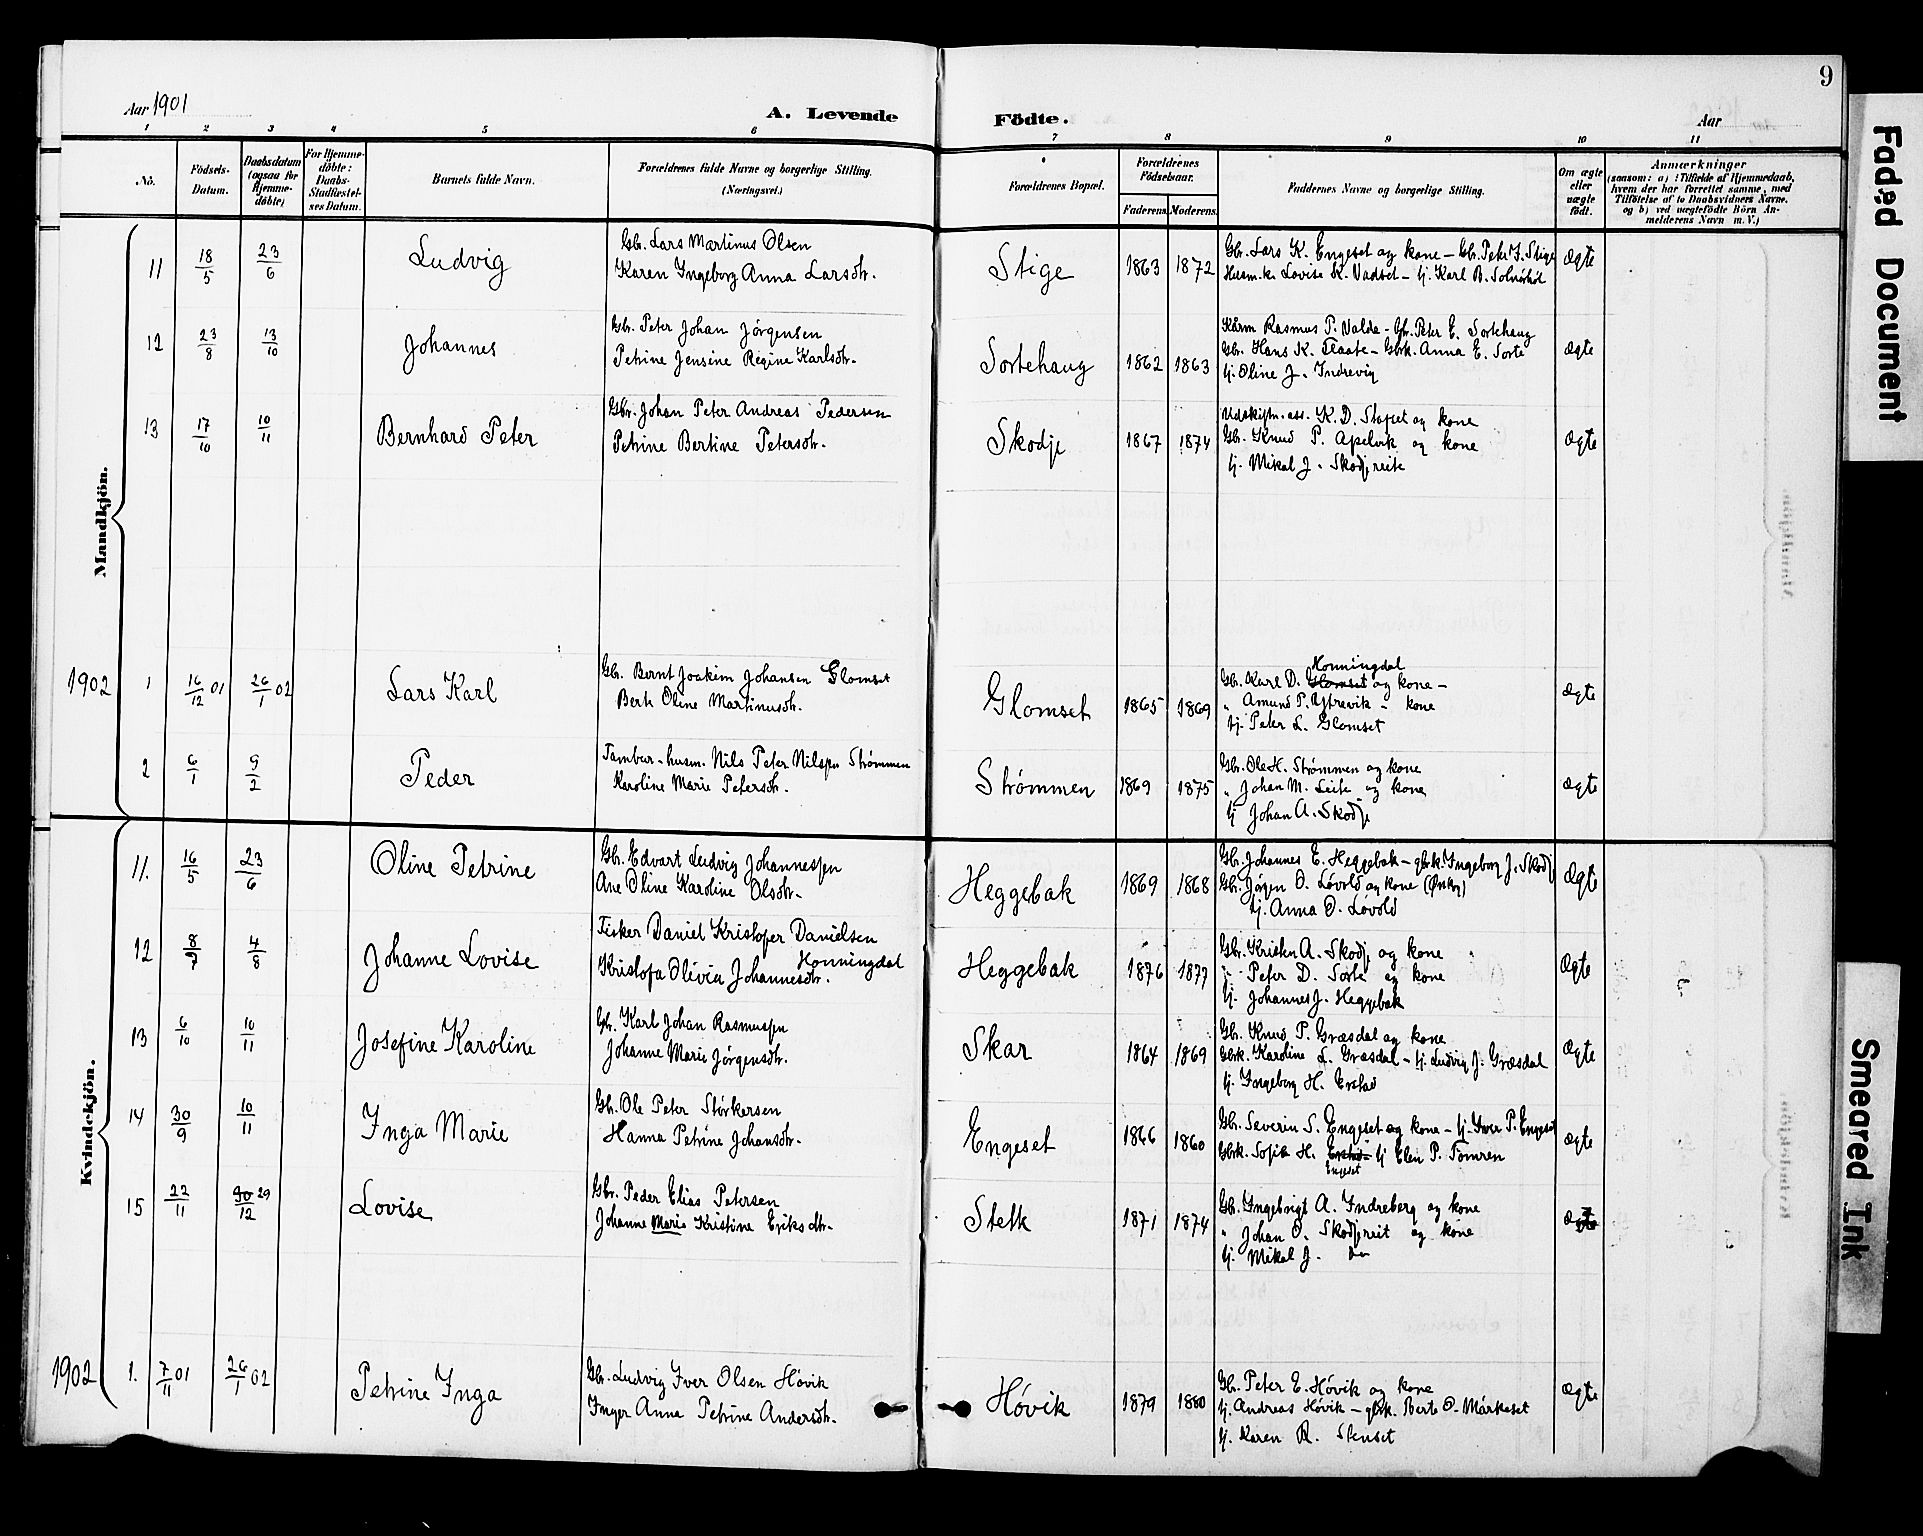 9
Aar 1901
A. Levende Födte.
Aar
1 2 3 4 5 6 7 8 9 10 11
No.
Födsels-Datum.
Daabsdatum (ogsaa for Hjemme-döbte)
For Hjemme-döbte: Daabs-Stadfæstel-ses Datum.
Barnets fulde Navn.
Forældrenes fulde Navne og borgerlige Stilling. (Næringsvei.)
Forældrenes Bopæl.
Forældrenes Födselsaar.
Faderens. Moderens.
Faddernes Navne og borgerlige Stilling.
Om ægte eller uægte födt.
Anmærkninger
(saasom: a) i Tilfælde af Hjemmedaab,
hvem der har forrettet samme, med
Tilföielse af to Daabsvidners Navne.
og b) ved uægtefödte Börn An-
melderens Navn m. V.)
Mandkjön.
11 18/5 23/6 Ludvig
Gbr. Lars Martinus Olsen
Karen Ingeborg Anna Larsdtr.
Stige 1863 1872
Gbr. Lars K. Engeset og kone – Gbr. Peter J. Stige
Husm.k. Lovise K. Vadset – tj. Karl B. Solnørhol
Ægte
12 23/8 13/10 Johannes
Gbr. Peter Johan Jørgensen
Petrine Jensine Regine Karlsdtr.
Sortehaug 1862 1863
Kårm Rasmus P. Valde – Gbr. Peter E. Sortehaug
Gbr. Hans K. Flaate – Gbrk. Anna E. Sorte
tj. Oline J. Indrevig
Ægte
13 17/10 10/11 Bernhard Peter
Gbr. Johan Peter Andreas Pedersen
Petrine Bertine Petersdtr.
Skodje 1867 1874
Udskiftn. ass. K. D. Stafset og kone
Gbr. Knud P. Apelvik og kone
tj. Mikal J. Skodjereite
Ægte
1902
1 16/12 01 26/1 02 Lars Karl
Gbr. Bernt Joakim Johansen Glomset
Berte Oline Martinusdtr.
Glomset 1865 1869
Honningdal
Gbr. Karl D. Glomset og kone –
" Amund P. Ytrevik – kone
tj. Peter L. Glomset
Ægte
2 6/1 9/2 Peder
Tambur – husm. Nils Peter Nilssen Strømmen
Karoline Marie Petersdtr.
Strømmen 1869 1875
Gbr. Ole H. Strømmen og kone
" Johan M. Leite og kone
tj Johan A. Skodje
Ægte
Kvindekjön.
11. 16/5 23/6 Oline Petrine
Gbr. Edvart Ludvig Johannessen
Ane Oline Karoline Olsdtr.
Heggebak 1869 1868
Gbr. Johannes E. Heggebak – gbrk. Ingeborg J. Skodj
Gbr. Jørgen O. Løvold og kone (Ørskog)
tj. Anna O. Løvold
Ægte
12 8/7 4/8 Johanne Lovise
Fisker Daniel Kristofer Danielsen
Honningdal
Kristofa Olivia Johannesdtr.
Heggebak 1876 1877
Gbr. Kristen A. Skodj og kone
Peter D. Sorte og kone
tj. Johannes J. Heggebak
Ægte
13 6/10 10/11 Josefine Karoline
Gbr. Karl Johan Rasmussen
Johanne Marie Jørgensdtr.
Skar 1864 1869
Gbr. Knud P. Græsdal og kone
Gbrk. Karoline L. Græsdal – tj. Ludvig J. Græsdal
tj. Ingeborg H. Erstad
Ægte
14 30/9 10/11 Inga Marie
Gbr. Ole Peter Størkersen
Hanna Petrine Johansdtr.
Engeset 1866 1860
Gbr. Severin S. Engeset og kone – tj. Iver P. Engeset
Gbrk. Sofie H. Erstad – tj Elen P. Tomren
Engeset
Ægte
15 22/11 30/12 29 Lovise
Gbr. Peder Elias Petersen
Johanne Marie Kristine Eriksdtr.
Stette 1871 1874
Gbr. Ingebrigt A. Indreberg og kone
" Johan O. Skodjereit og kone
tj. Mikal J. Do
Ægte
1902
1. 7/11 01 26/1 02 Petrine Inga
Gbr. Ludvig Iver Olsen Høvik
Inger Anna Petrine Andersdtr.
Høvik 1879 1880
Gbr. Peter E. Høvik og kone
tj. Andreas Høvik – gbrk. Berte O. Märkeset
tj. Karen R. Stenset
Ægte
Faded Document
Smeared Ink